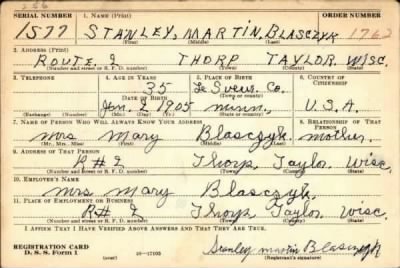 256
SERIAL NUMBER 1. NAME (Print) ORDER NUMBER
1577 STANLEY, MARTIN, BLASCZYK 1762
(First) (Middle) (Last)
2. ADDRESS (Print)
ROUTE. 2 THORP TAYLOR. WISC.
(Number and street or R. F. D. number) (Town) (County) (State)
3. TELEPHONE 4. AGE IN YEARS 5. PLACE OF BIRTH 6. COUNTRY OF CITIZENSHIP
35 Le Sueur. Co.
DATE OF BIRTH (Town or county)
Jan. 2 1905 Minn. U.S.A.
(Exchange) (Number) (Mo.) (Day) (Yr.) (State or country)
7. NAME OF PERSON WHO WILL ALWAYS KNOW YOUR ADDRESS 8. RELATIONSHIP OF THAT PERSON
Mrs Mary Blasczyk. Mother.
(Mr., Mrs., Miss) (First) (Middle) (Last)
9. ADDRESS OF THAT PERSON
R#2 Thorp, Taylor, Wisc.
(Number and street or R. F. D. number) (Town) (County) (State)
10. EMPLOYER'S NAME
Mrs. Mary Blasczyk.
11. PLACE OF EMPLOYMENT OR BUSINESS
R#2 Thorp Taylor. Wisc.
(Number and street or R. F. D. number) (Town) (County) (State)
I AFFIRM THAT I HAVE VERIFIED ABOVE ANSWERS AND THAT THEY ARE TRUE.
REGISTRATION CARD
D. S. S. Form 1 (over) 16—17105 Stanley Martin Blasczyk
(Registrant's signature)